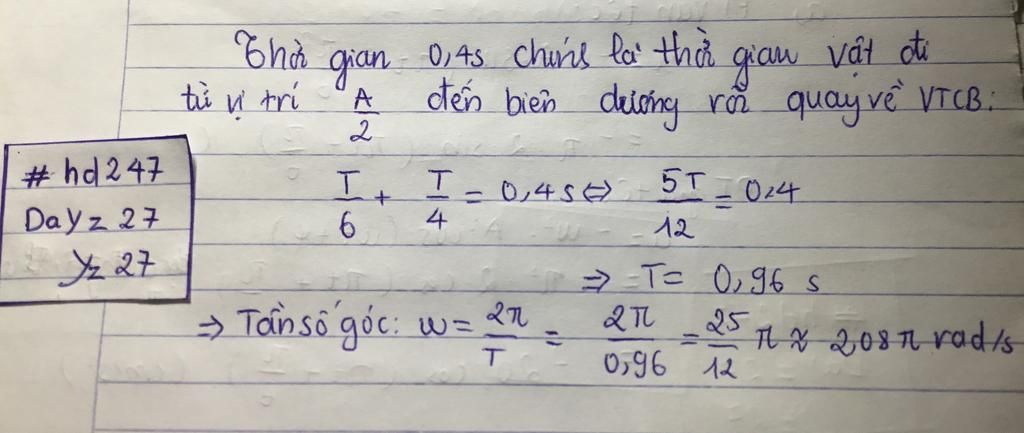 Thời gian 0,4s chính là thời gian vật đi
từ vị trí A/2 đến biên dương rồi quay về VTCB:
# hd247
DaYz 27
Yz 27
T/6 + T/4 = 0,4s ⇔ 5T/12 = 0,4
⇒ T = 0,96 s
⇒ Tần số góc: ω = 2π/T = 2π/0,96 = 25/12 π ≈ 2,08π rad/s